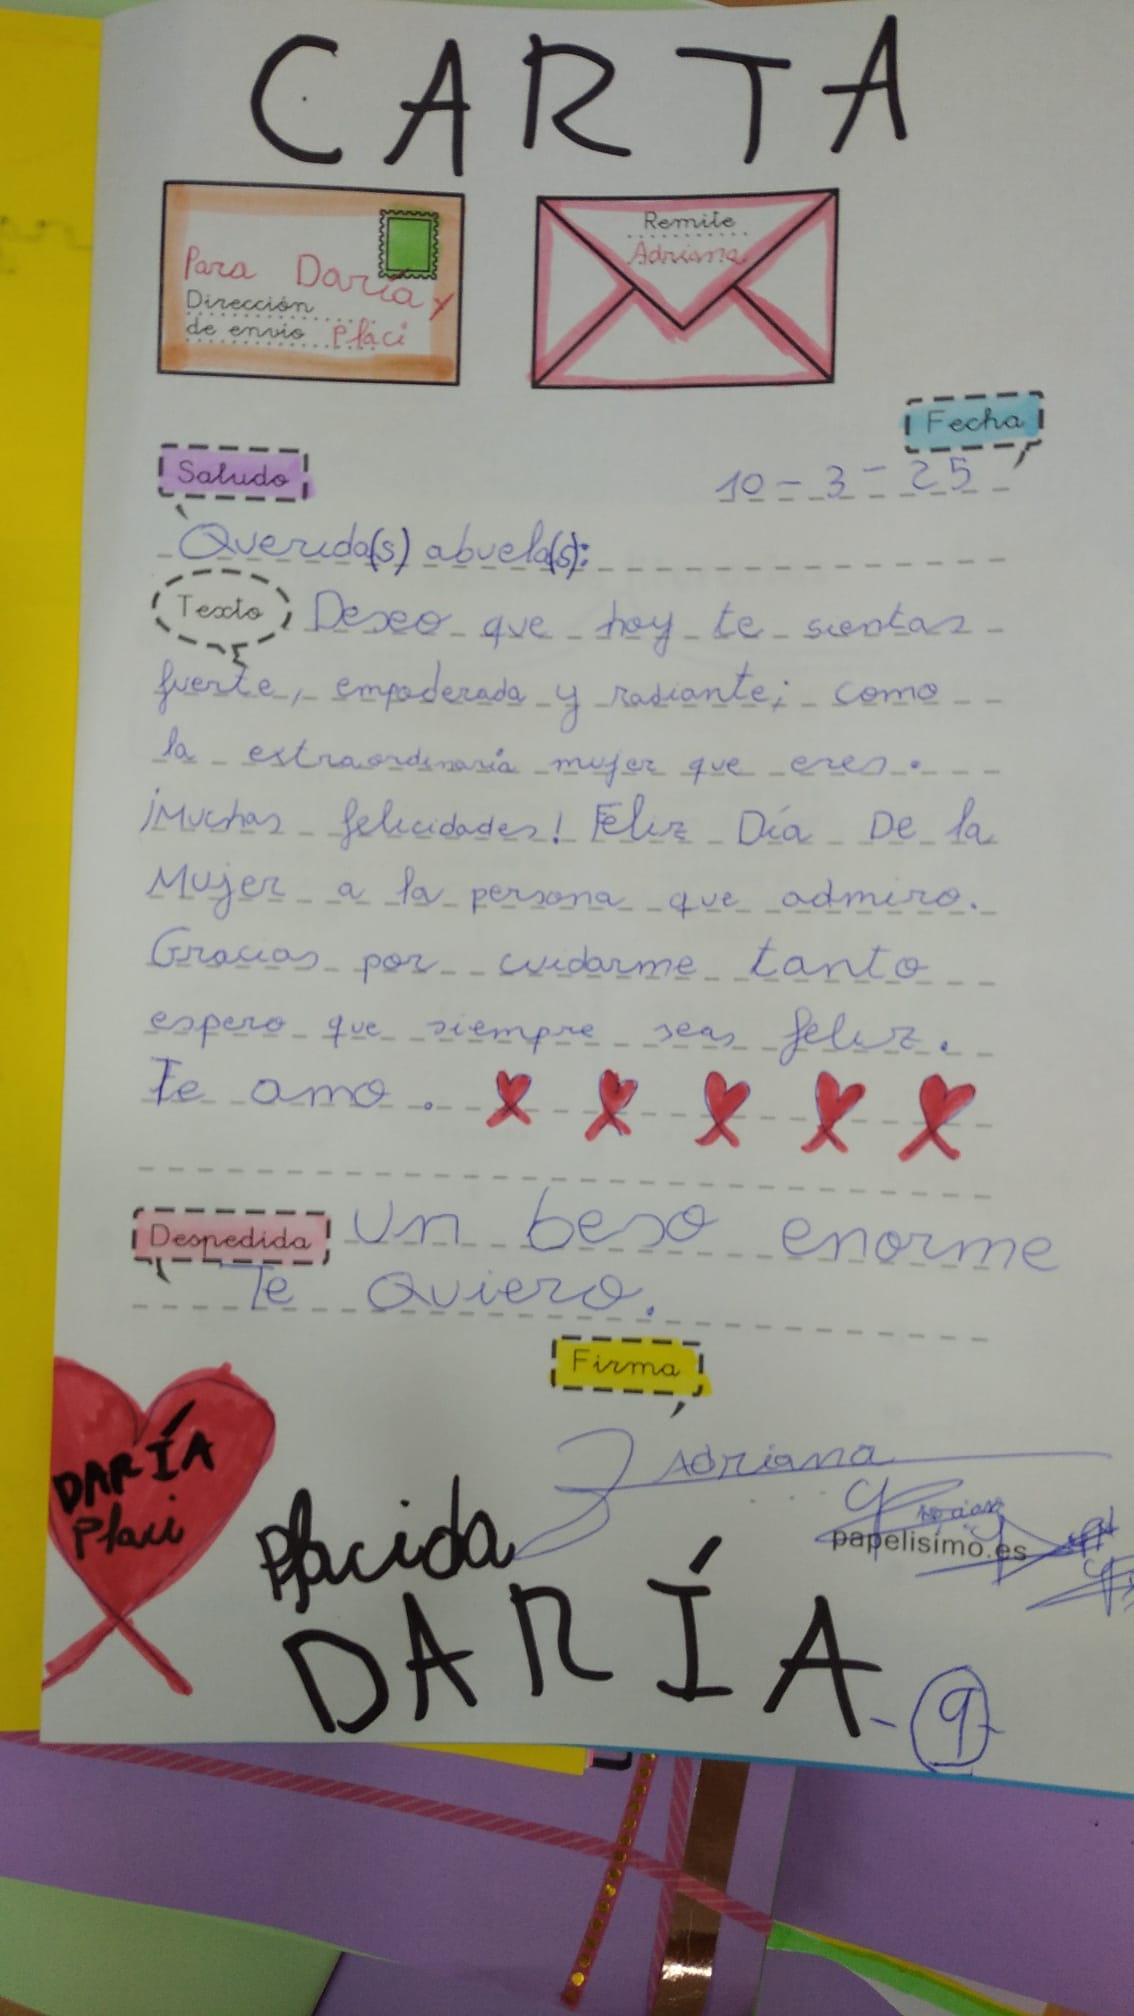 CARTA
Para Daría y
Dirección
de envío Placi
Remite
Adriana
Fecha
10-3-25
Saludo
Querida(s) abuela(s):
Texto Deseo que hoy te sientas
fuerte, empoderada y radiante; como
la extraordinaria mujer que eres.
¡Muchas felicidades! Feliz Día De la
Mujer a la persona que admiro.
Gracias por cuidarme tanto
espero que siempre seas feliz.
Te amo.
Despedida Un beso enorme
Te Quiero.
Firma
Adriana
papelisimo.es
DARÍA
Placi
Placida
DARÍA
-9-